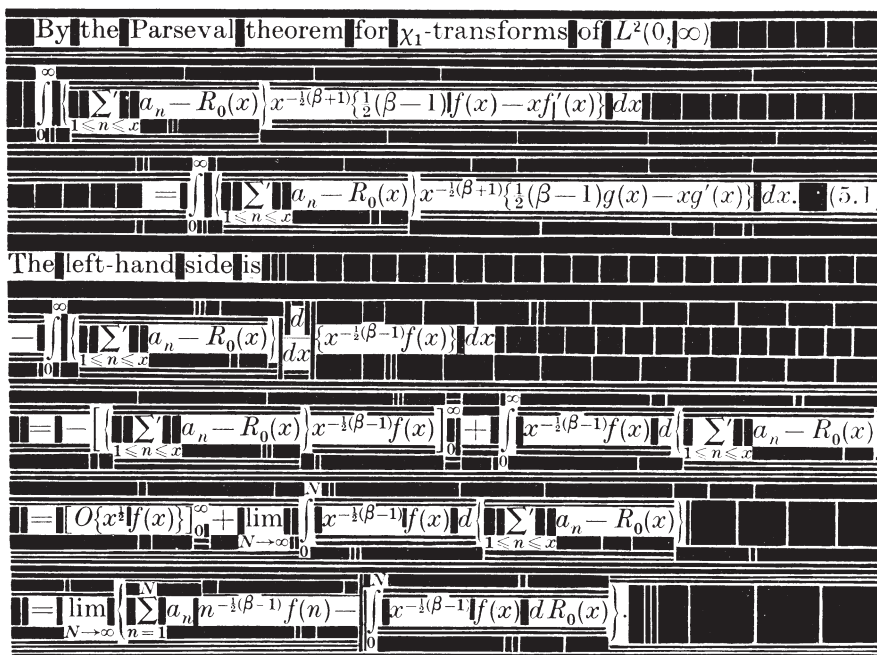 By the Parseval theorem for χ₁-transforms of L²(0, ∞)
∫₀^∞ { ∑′_{1≤n≤x} aₙ − R₀(x) } x^{−½(β+1)} {½(β−1) f(x) − xf′(x)} dx
= ∫₀^∞ { ∑′_{1≤n≤x} aₙ − R₀(x) } x^{−½(β+1)} {½(β−1)g(x) − xg′(x)} dx. (5.1
The left-hand side is
− ∫₀^∞ { ∑′_{1≤n≤x} aₙ − R₀(x) } d/dx {x^{−½(β−1)} f(x)} dx
= − [ { ∑′_{1≤n≤x} aₙ − R₀(x) } x^{−½(β−1)} f(x) ]₀^∞ + ∫₀^∞ x^{−½(β−1)} f(x) d{ ∑′_{1≤n≤x} aₙ − R₀(x)
= [O{x^{½} f(x)}]₀^∞ + lim_{N→∞} ∫₀^N x^{−½(β−1)} f(x) d{ ∑′_{1≤n≤x} aₙ − R₀(x) }
= lim_{N→∞} { ∑_{n=1}^N aₙ n^{−½(β−1)} f(n) − ∫₀^N x^{−½(β−1)} f(x) dR₀(x) }.